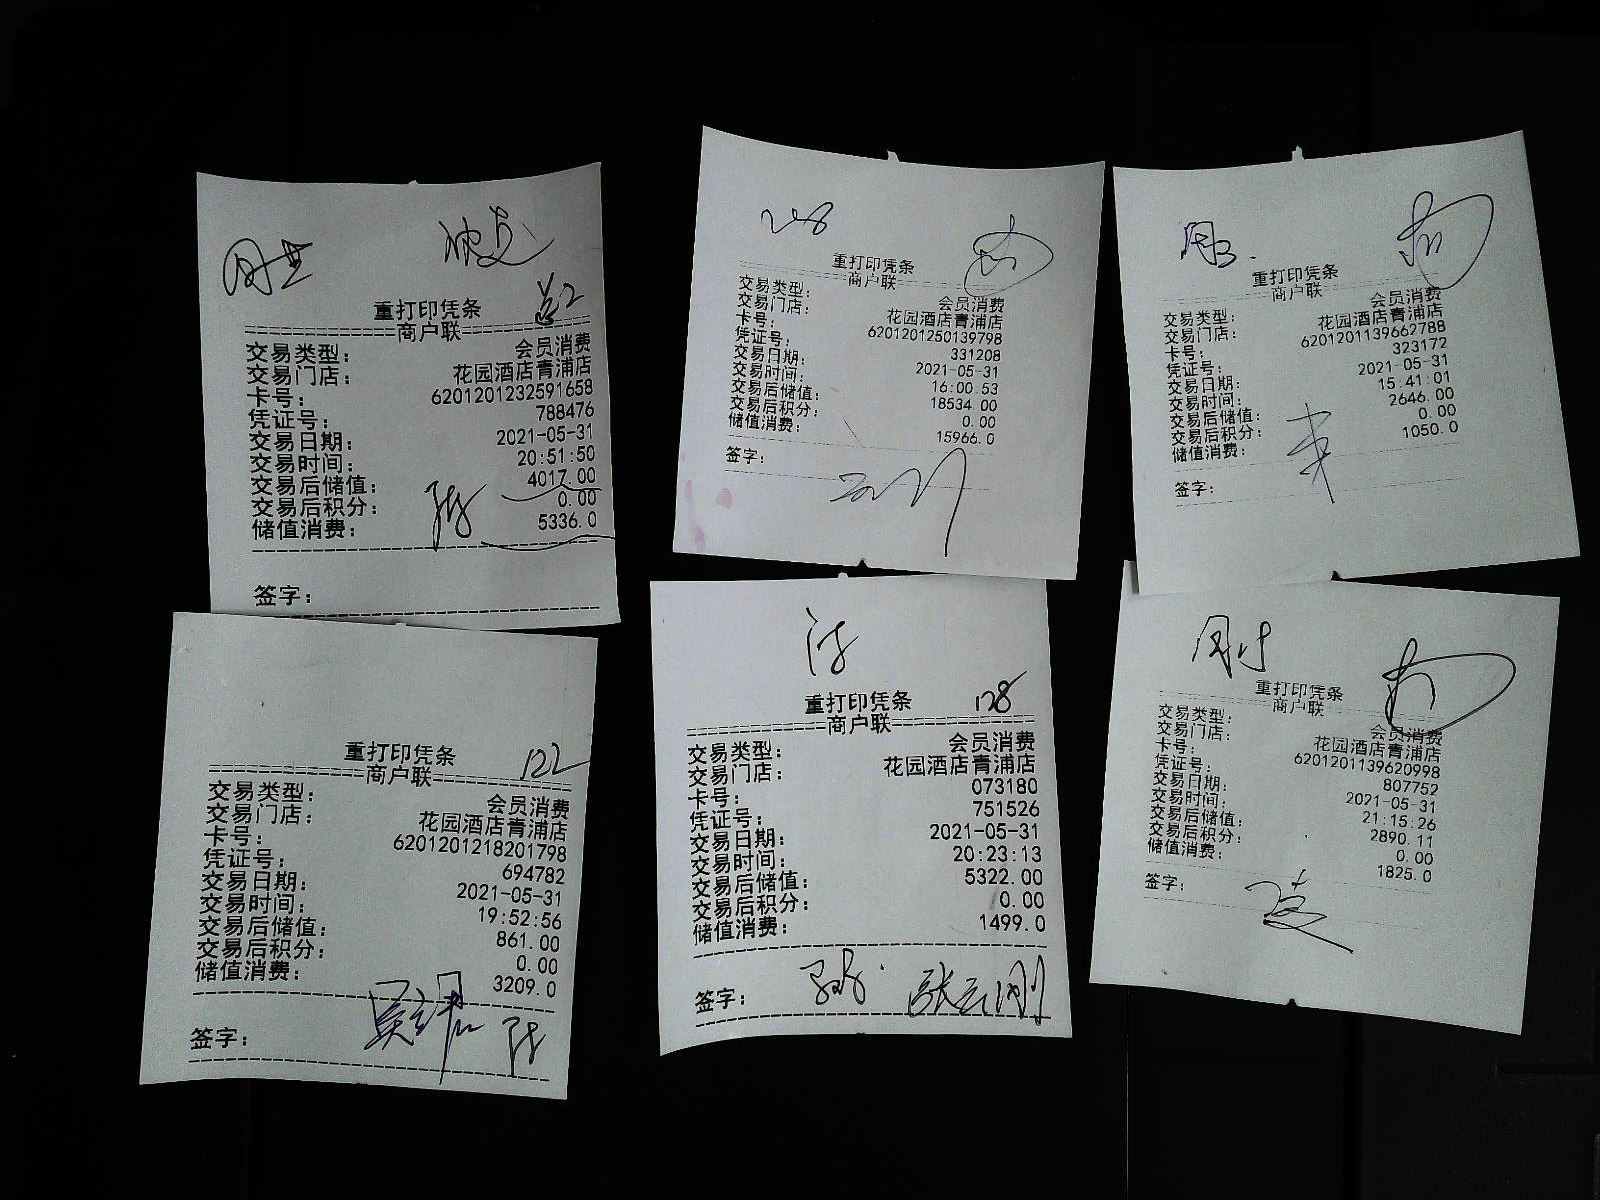 重打印凭条
商户联
交易类型： 会员消费
交易门店： 花园酒店青浦店
卡号： 6201201232591658
凭证号： 788476
交易日期： 2021-05-31
交易时间： 20:51:50
交易后储值： 4017.00
交易后积分： 0.00
储值消费： 5336.0
签字：
重打印凭条
商户联
交易类型： 会员消费
交易门店： 花园酒店青浦店
卡号： 6201201250139798
凭证号： 331208
交易日期： 2021-05-31
交易时间： 16:00:53
交易后储值： 18534.00
交易后积分： 0.00
储值消费： 15966.0
签字：
重打印凭条
商户联
交易类型： 会员消费
交易门店： 花园酒店青浦店
卡号： 6201201139662788
凭证号： 323172
交易日期： 2021-05-31
交易时间： 15:41:01
交易后储值： 2646.00
交易后积分： 0.00
储值消费： 1050.0
签字：
重打印凭条
122
商户联
交易类型： 会员消费
交易门店： 花园酒店青浦店
卡号： 6201201218201798
凭证号： 694782
交易日期： 2021-05-31
交易时间： 19:52:56
交易后储值： 861.00
交易后积分： 0.00
储值消费： 3209.0
签字：
重打印凭条
128
商户联
交易类型： 会员消费
交易门店： 花园酒店青浦店
卡号： 073180
凭证号： 751526
交易日期： 2021-05-31
交易时间： 20:23:13
交易后储值： 5322.00
交易后积分： 0.00
储值消费： 1499.0
签字： 张云刚
重打印凭条
商户联
交易类型： 会员消费
交易门店： 花园酒店青浦店
卡号： 6201201139620998
凭证号： 807752
交易日期： 2021-05-31
交易时间： 21:15:26
交易后储值： 2890.11
交易后积分： 0.00
储值消费： 1825.0
签字：